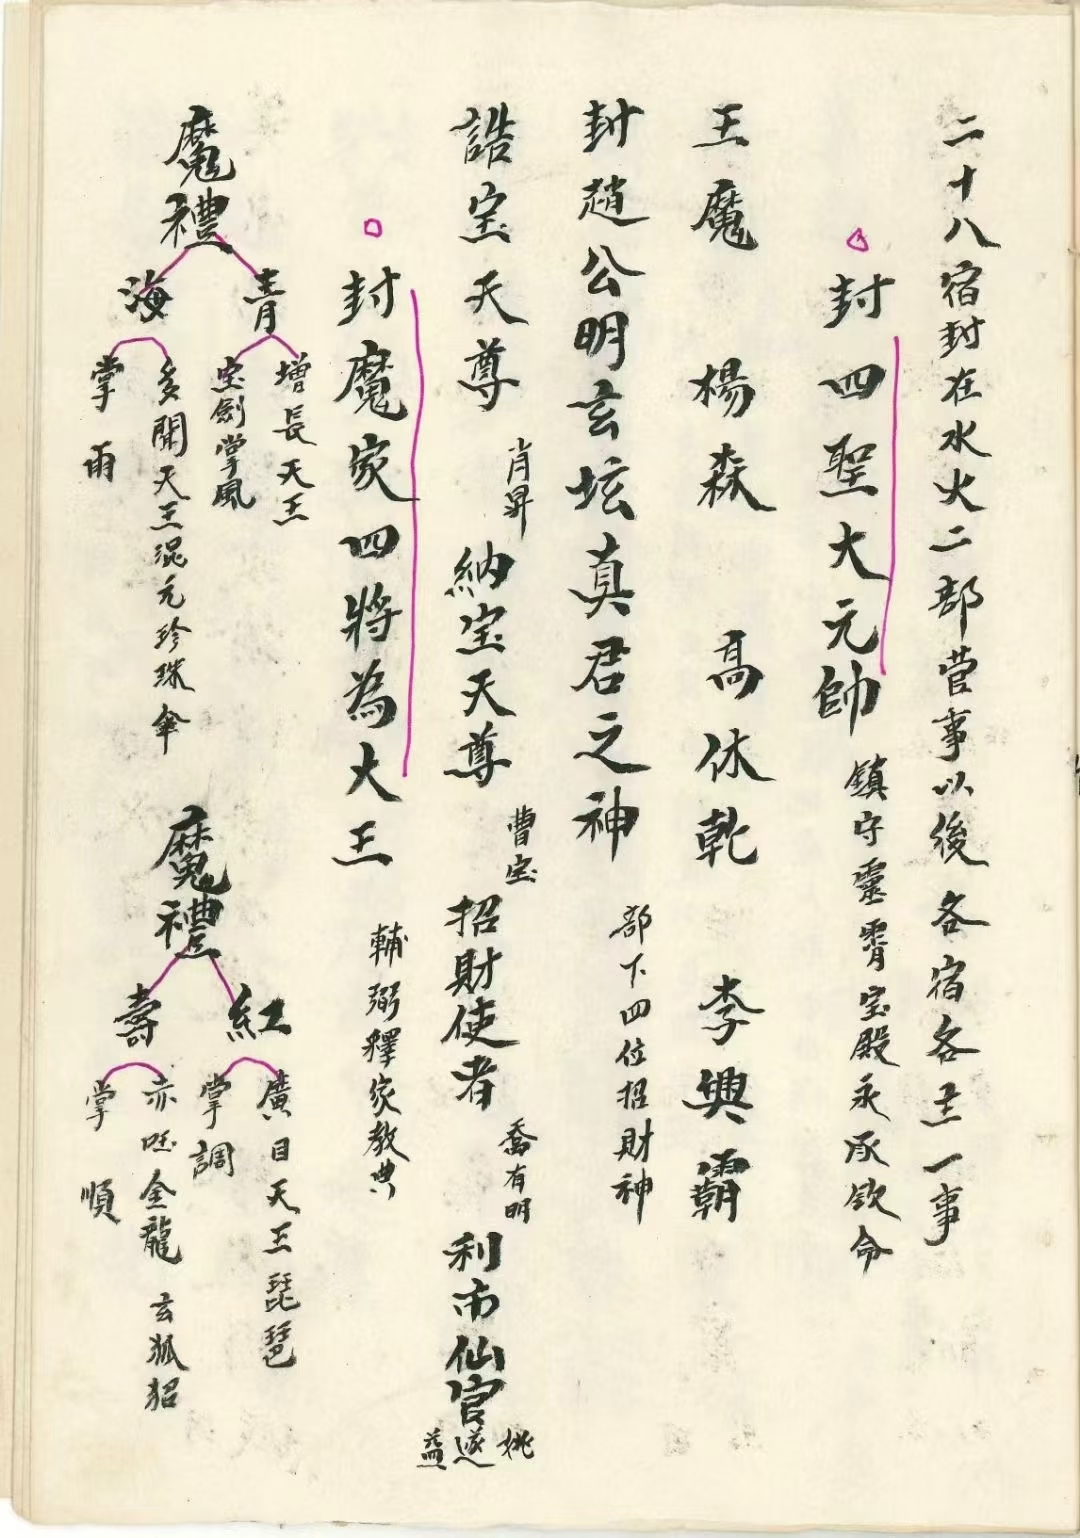 二十八宿封在水火二部营事以後各宿各主一事
封四聖大元帥 鎮守靈霄宝殿永承欽命
王魔 楊森 高休乾 李興霸
封趙公明玄坛真君之神 部下四位招財神
誥宝天尊 肖昇 納宝天尊 曹宝 招財使者 喬有明 利市仙官 姚遂益
封魔家四將為大王 輔弼釋家教典
魔禮
青
增長天王
宝劍掌風
海
多聞天王混元珍珠傘
掌雨
魔禮
紅
廣目天王琵琶
掌調
壽
赤金龍 玄狐貂
掌順